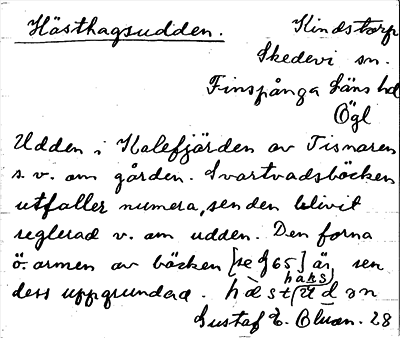 Hästhagsudden. Kindstorp
Skedevi sn.
Finspånga läns hd
Ögl
Udden i Kalefjärden av Tisnaren
s.v. om gården. Svartvadsbäcken
utfaller numera, sen den blivit
reglerad v. om udden. Den forna
ö. armen av bäcken [se 65] är, sen
dess uppgrundad.
Gustaf E. Bluan. 28